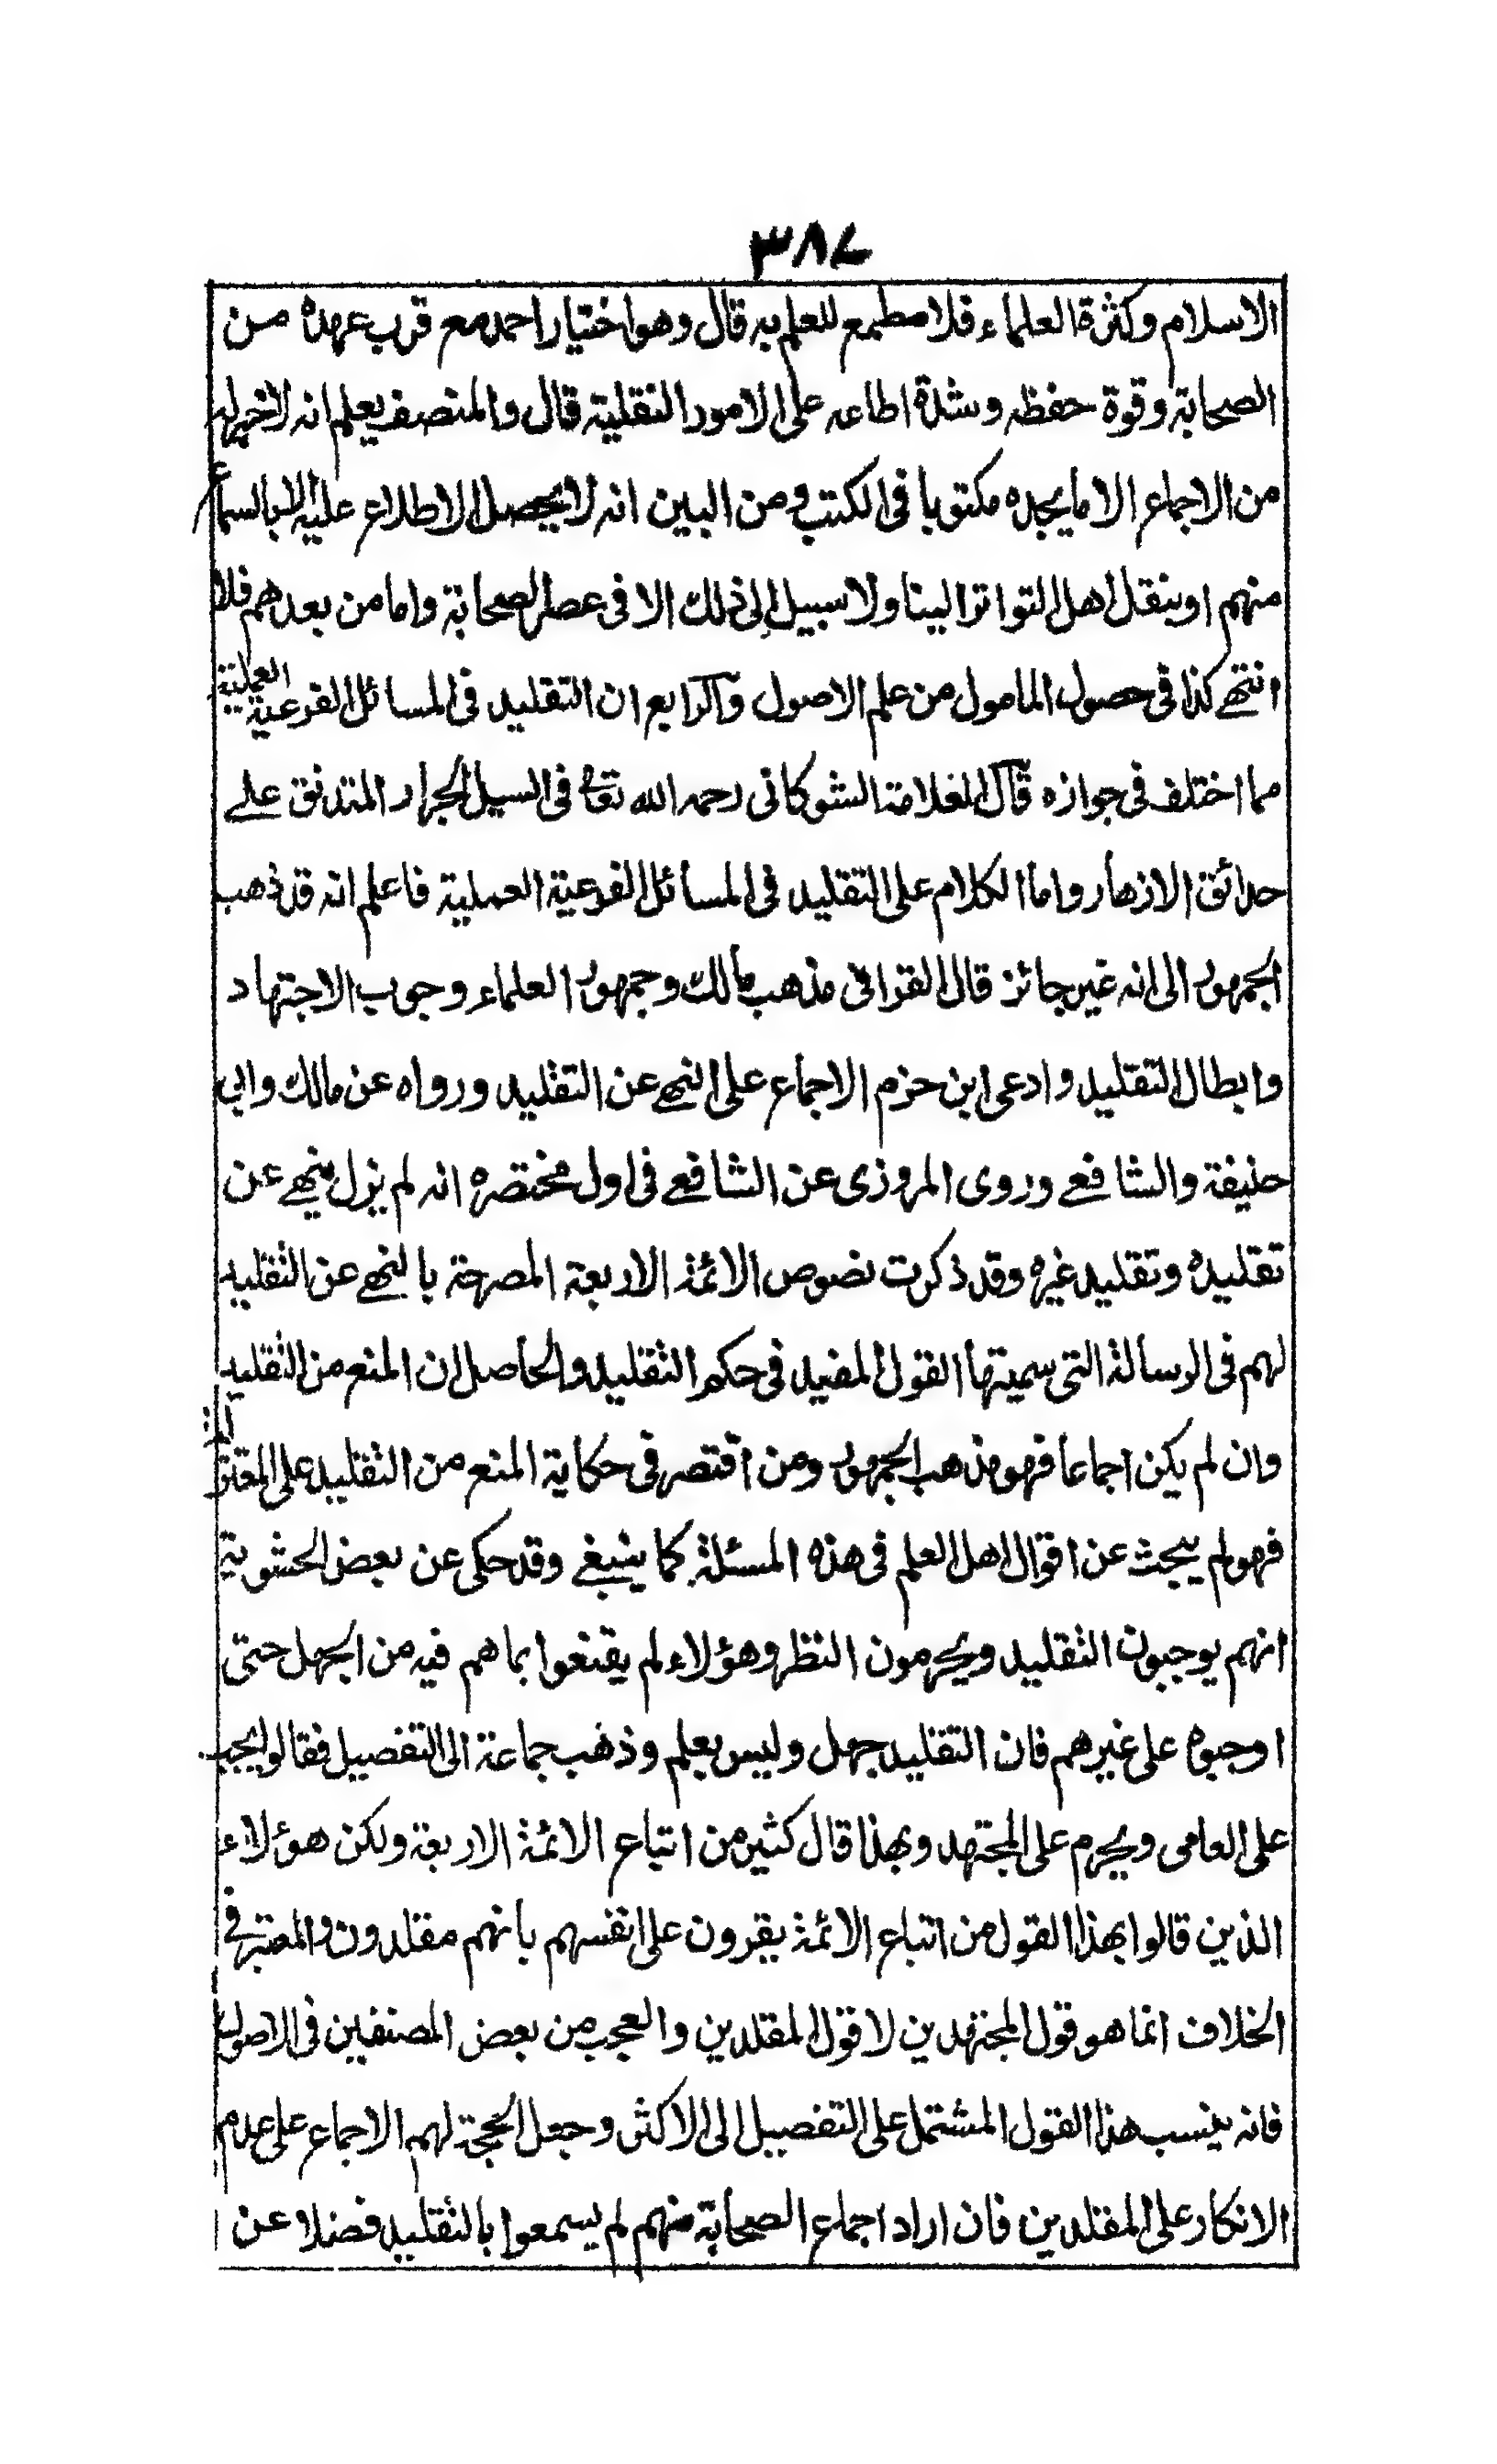 ٣٨٧
الاسلام وكثرة العلماء فلا مطمع للعلم به قال وهو اختيار احمد مع قرب عهده من
الصحابة وقوة حفظه وشدة اطاعه على الامور النقلية قال والمنصف يعلم انه لا خبر له
من الاجماع الا ما يجده مكتوبا فى الكتب ومن البين انه لا يحصل الاطلاع عليه الا بالسماع
منهم او بنقل اهل التواتر الينا ولا سبيل الى ذلك الا فى عصر الصحابة واما من بعدهم فلا
انتهے كذا فى حصول المامول من علم الاصول والرابع ان التقليد فى المسائل الفرعية العملية
مما اختلف فى جوازه قال العلامة الشوكانى رحمه الله تعالى فى السيل الجرار المتدفق علے
حدائق الازهار واما الكلام على التقليد فى المسائل الفرعية العملية فاعلم انه قد ذهب
الجمهور الى انه غير جائز قال القرافى مذهب مالك وجمهور العلماء وجوب الاجتهاد
وابطال التقليد وادعى ابن حزم الاجماع على النهے عن التقليد ورواه عن مالك وابى
حنيفة والشافعے وروى المروزى عن الشافعے فى اول مختصره انه لم يزل ينهے عن
تقليده وتقليد غيره وقد ذكرت نصوص الائمة الاربعة المصرحة بالنهے عن التقليد
لهم فى الرسالة التى سميتها القول المفيد فى حكم التقليد والحاصل ان المنع من التقليد
وان لم يكن اجماعا فهو مذهب الجمهور ومن اقتصر فى حكاية المنع من التقليد على المعتزلة
فهو لم يبحث عن اقوال اهل العلم فى هذه المسئلة كما ينبغے وقد حكى عن بعض الحشوية
انهم يوجبون التقليد ويحرمون النظر وهؤلاء لم يقنعوا بما هم فيه من الجهل حتى
اوجبوه على غيرهم فان التقليد جهل وليس بعلم وذهب جماعة الى التفصيل فقالوا يجب
على العامى ويحرم على المجتهد وبهذا قال كثير من اتباع الائمة الاربعة ولكن هؤلاء
الذين قالوا بهذا القول من اتباع الائمة يقرون على انفسهم بانهم مقلدون والمعتبر فى
الخلاف انما هو قول المجتهدين لا قول المقلدين والعجب من بعض المصنفين فى الاصول
فانه ينسب هذا القول المشتمل على التفصيل الى الاكثر وجعل الحجة لهم الاجماع على عدم
الانكار على المقلدين فان اراد اجماع الصحابة منهم لم يسمعوا بالتقليد فضلا عن